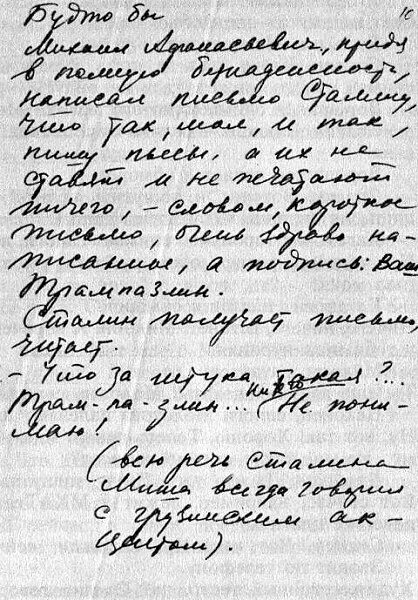 Будто бы
Михаил Афанасьевич, придя
в полную безнадежность,
написал письмо Сталину,
что так, мол, и так,
пишу пьесы, а их не
ставят и не печатают
ничего, – словом, короткое
письмо, очень здраво на-
писанное, а подпись: Ваш
Трампазлин.
Сталин получает письмо
читает.
– Что за штука такая?...
Трам-па-злин... Не пони-
маю!
(всю речь Сталина
Миша всегда говорил
с грузинским ак-
центом).